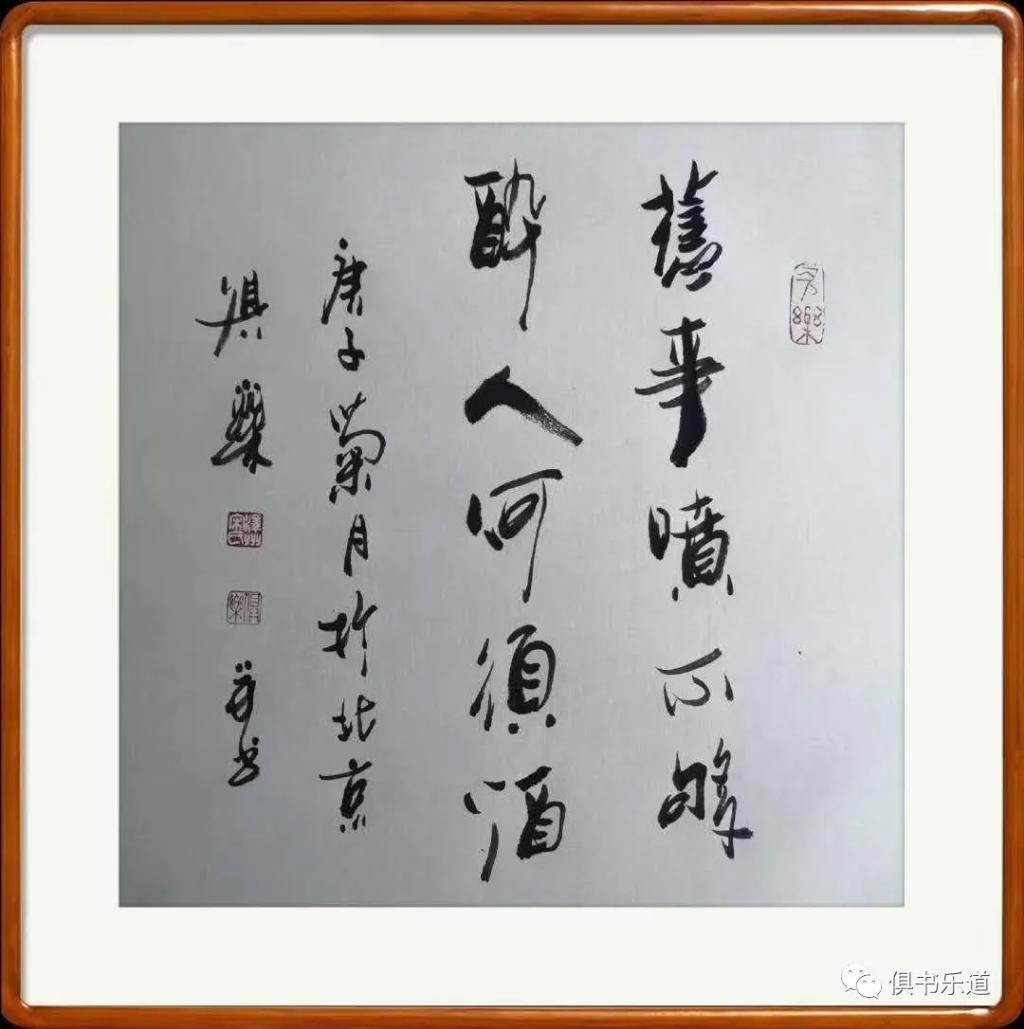 舊事噴不夠
醉人何須酒
庚子菊月於北京
俱樂
并书
俱书乐道